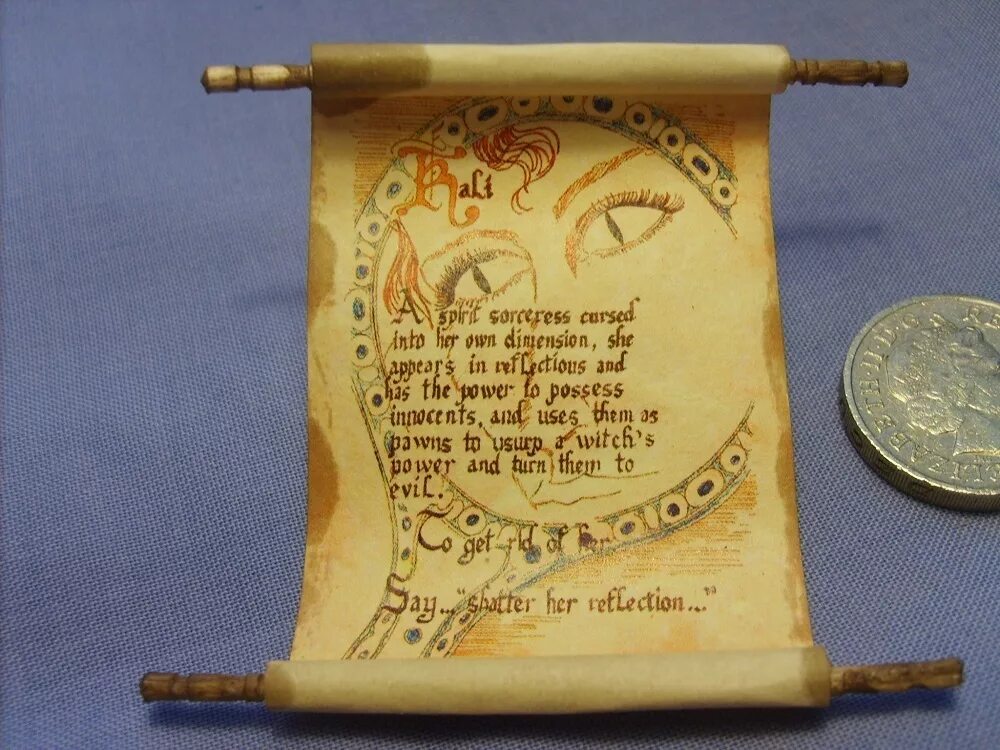 Kali
A spirit sorceress cursed
into her own dimension, she
appears in reflections and
has the power to possess
innocents, and uses them as
pawns to usurp a witch's
power and turn them to
evil.
To get rid of her
Say..."shatter her reflection..."
ELIZABETH·II·D·G